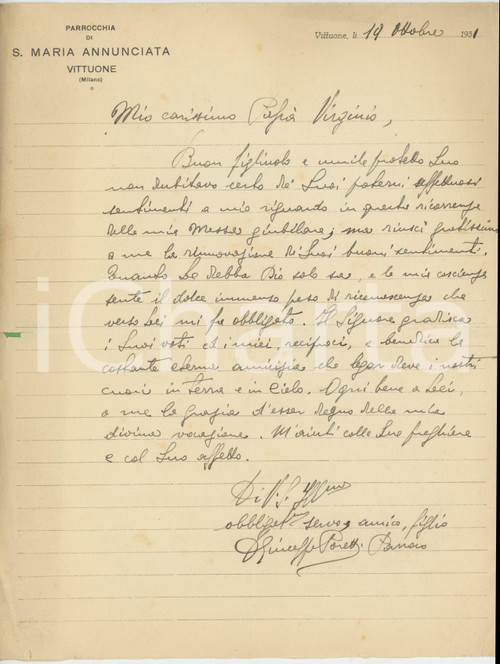 PARROCCHIA
DI
S. MARIA ANNUNCIATA
VITTUONE
(Milano)
Vittuone, li 19 Ottobre 1931
Mio carissimo Papà Virginio,
Buon figliuolo e umile fratello Suo
non dubitavo certo de' Suoi paterni affettuosi
sentimenti a mio riguardo in questa ricorrenza
della mia Messa giubilare; ma riuscì gratissima
a me la rinnovazione di Suoi buoni sentimenti.
Quanto Le debba Dio solo sa, e la mia coscienza
sente il dolce immenso peso di riconoscenza che
verso Lei mi fa obbligato. Il Signore gradisca
i Suoi voti ed i miei, reciproci, e benedica la
costante eterna amicizia che legar deve i nostri
cuori in terra e in Cielo. Ogni bene a Lei,
a me la grazia d'esser degno della mia
divina vocazione. M'aiuti colle Sue preghiere
e col Suo affetto.
Di V. S. Ill.ma
obbligat.mo servo, amico, figlio
Giuseppe Poretti Parroco
iCharta